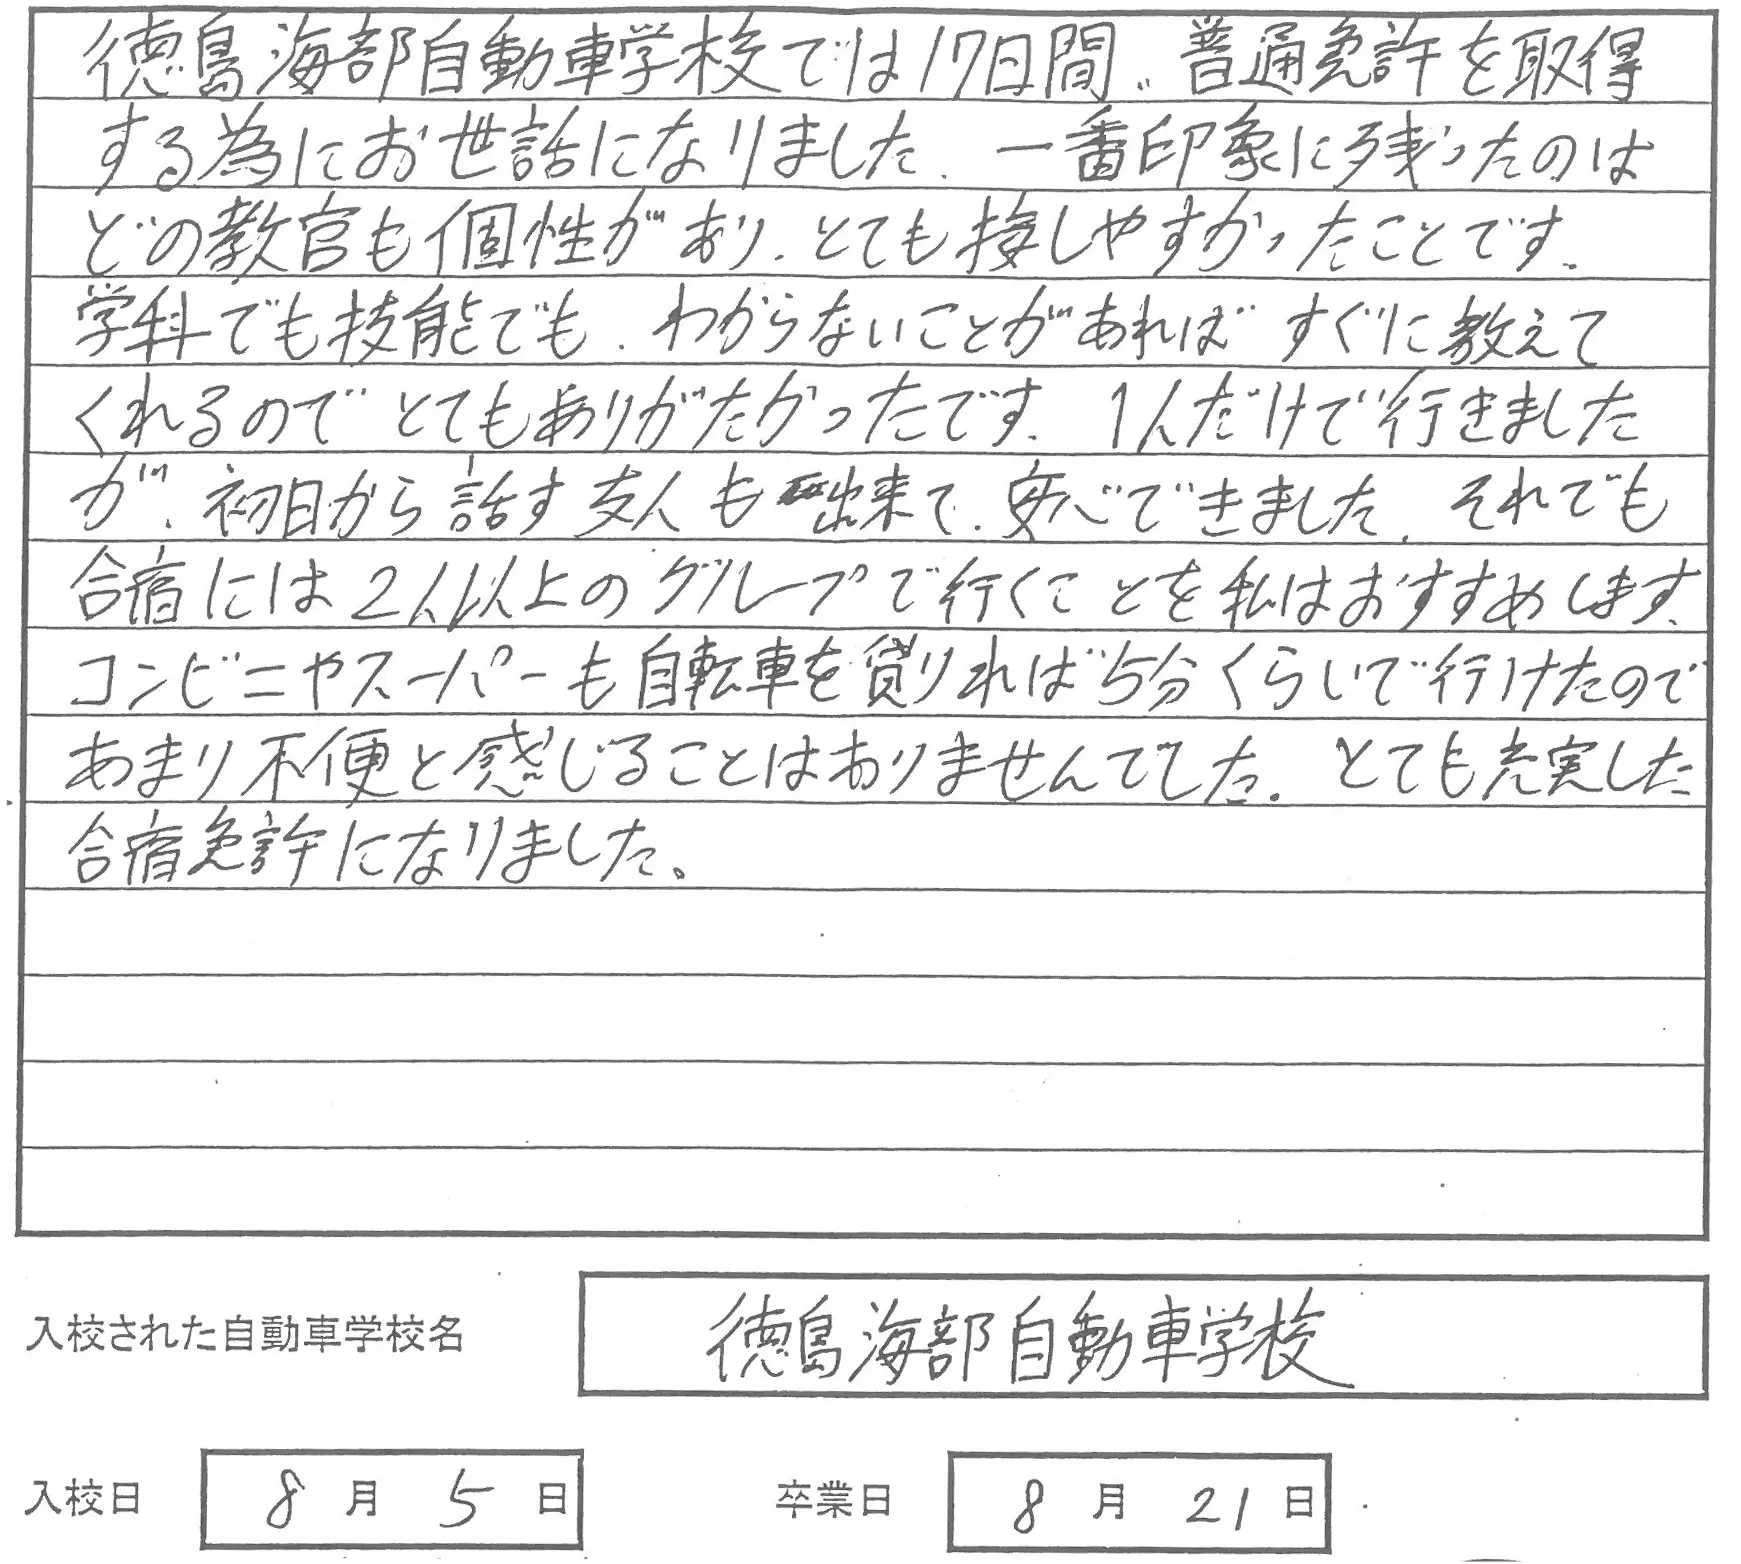 徳島海部自動車学校では17日間、普通免許を取得
する為にお世話になりました。一番印象に残ったのは
どの教官も個性があり、とても接しやすかったことです。
学科でも技能でも、わからないことがあれば すぐに教えて
くれるので とてもありがたかったです。1人だけで行きました
が、初日から話す友人も出来て、安心できました。それでも
合宿には2人以上のグループで行くことを私はおすすめします。
コンビニやスーパーも自転車を貸りれば5分くらいで行けたので
あまり不便と感じることはありませんでした。とても充実した
合宿免許になりました。
入校された自動車学校名 徳島海部自動車学校
入校日 8月5日 卒業日 8月21日